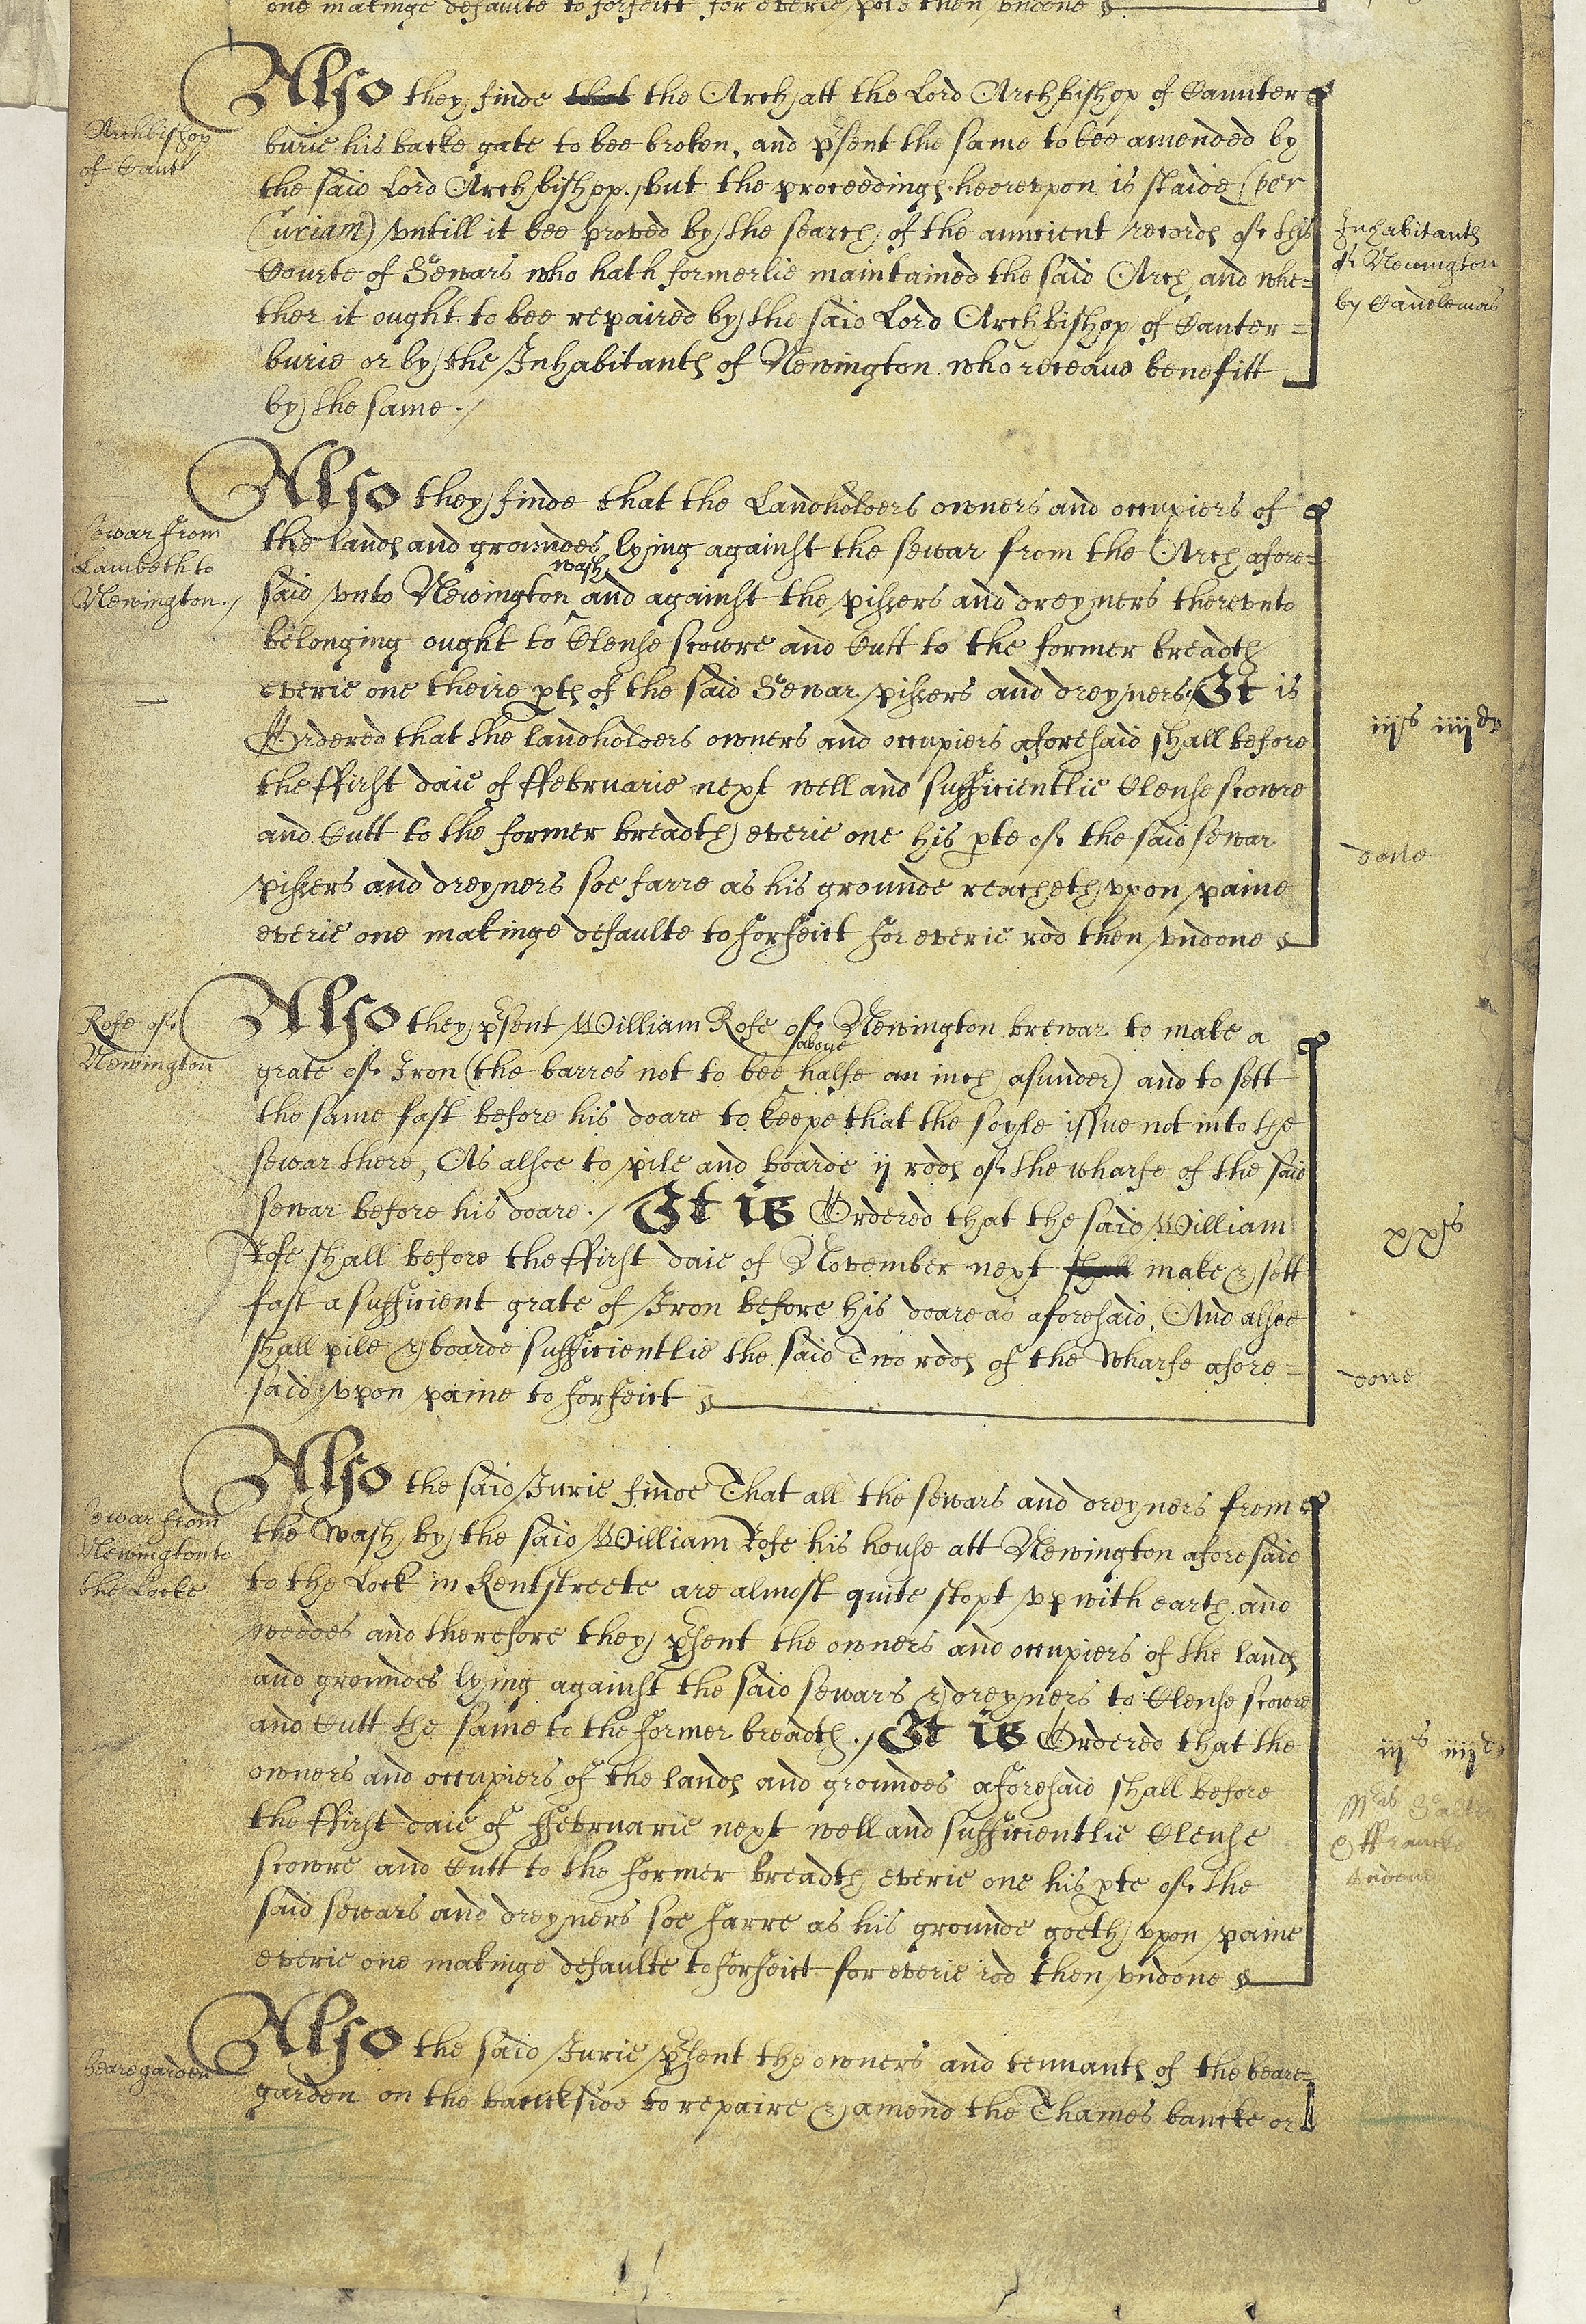 one makinge defaulte to forfeict for everie pole then vndone
Also they finde that the Arch att the Lord Archbishop of Caunter
Archbishop
of Cant
burie his backe gate to bee broken, and psent the same to bee amended by
the said Lord Archbishop., but the proceedings heerevpon is staide (per
Curiam) vntill it bee proved by the search of the auncient records of this
Courte of Sewars who hath formerlie maintained the said Arch, and whe=
ther it ought to bee repaired by the said Lord Archbishop of Canter=
burie or by the Inhabitants of Newington who receave benefitt
by the same ./
Inhabitants
of Newington
by Candlemas
Also they finde that the Landholders owners and occupiers of
Sewar from
Lambeth to
Newington ./
the lands and groundes lying against the sewar from the Arch afore=
said vnto Newington wash and against the pissers and dreyners therevnto
belonging ought to Clense scowre and Cutt to the former breadth
everie one theire pts of the said Sewar pissers and dreyners. It is
Ordered that the landholders owners and occupiers aforesaid shall before
the ffirst daie of ffebruarie next well and sufficientlie Clense scowre
and Cutt to the former breadth everie one his pte of the said sewar
pissers and dreyners soe farre as his grounde reacheth vpon paine
everie one makinge defaulte to forfeict for everie rod then vndone
iijs iiijd
done
Also they psent William Rofe of Newington brewar to make a
Rofe of
Newington
grate of Iron (the barres not to bee above halfe an inch asunder) and to sett
the same fast before his doare to keepe that the soyle issue not into the
sewar there, As alsoe to pile and boarde ij rods of the wharfe of the said
sewar before his doare ./ It is Ordered that the said William
Rofe shall before the ffirst daie of November next shall make & sett
fast a sufficient grate of Iron before his doare as aforesaid, And alsoe
shall pile & boarde sufficientlie the said Two rods of the wharfe afore=
said vpon paine to forfeict
xxs
done
Also the said Iurie finde That all the sewars and dreyners from
Sewar from
Newington to
the Locke
the Wash by the said William Rofe his house att Newington aforesaid
to the Lock in Kentstreete are almost quite stopt vp with earth and
weedes and therefore they psent the owners and occupiers of the lands
and groundes lying against the said sewars & dreyners to Clense scowre
and Cutt the same to the former breadth ./ It is Ordered that the
owners and occupiers of the lands and groundes aforesaid shall before
the ffirst daie of ffebruarie next well and sufficientlie Clense
scowre and Cutt to the former breadth everie one his pte of the
said sewars and dreyners soe farre as his grounde goeth vpon paine
everie one makinge defaulte to forfeict for everie rod then vndone
iijs iiijd
vndone
Also the said Iurie psent the owners and tennants of the beare=
bearegarden
garden on the banckside to repaire & amend the Thames bancke or